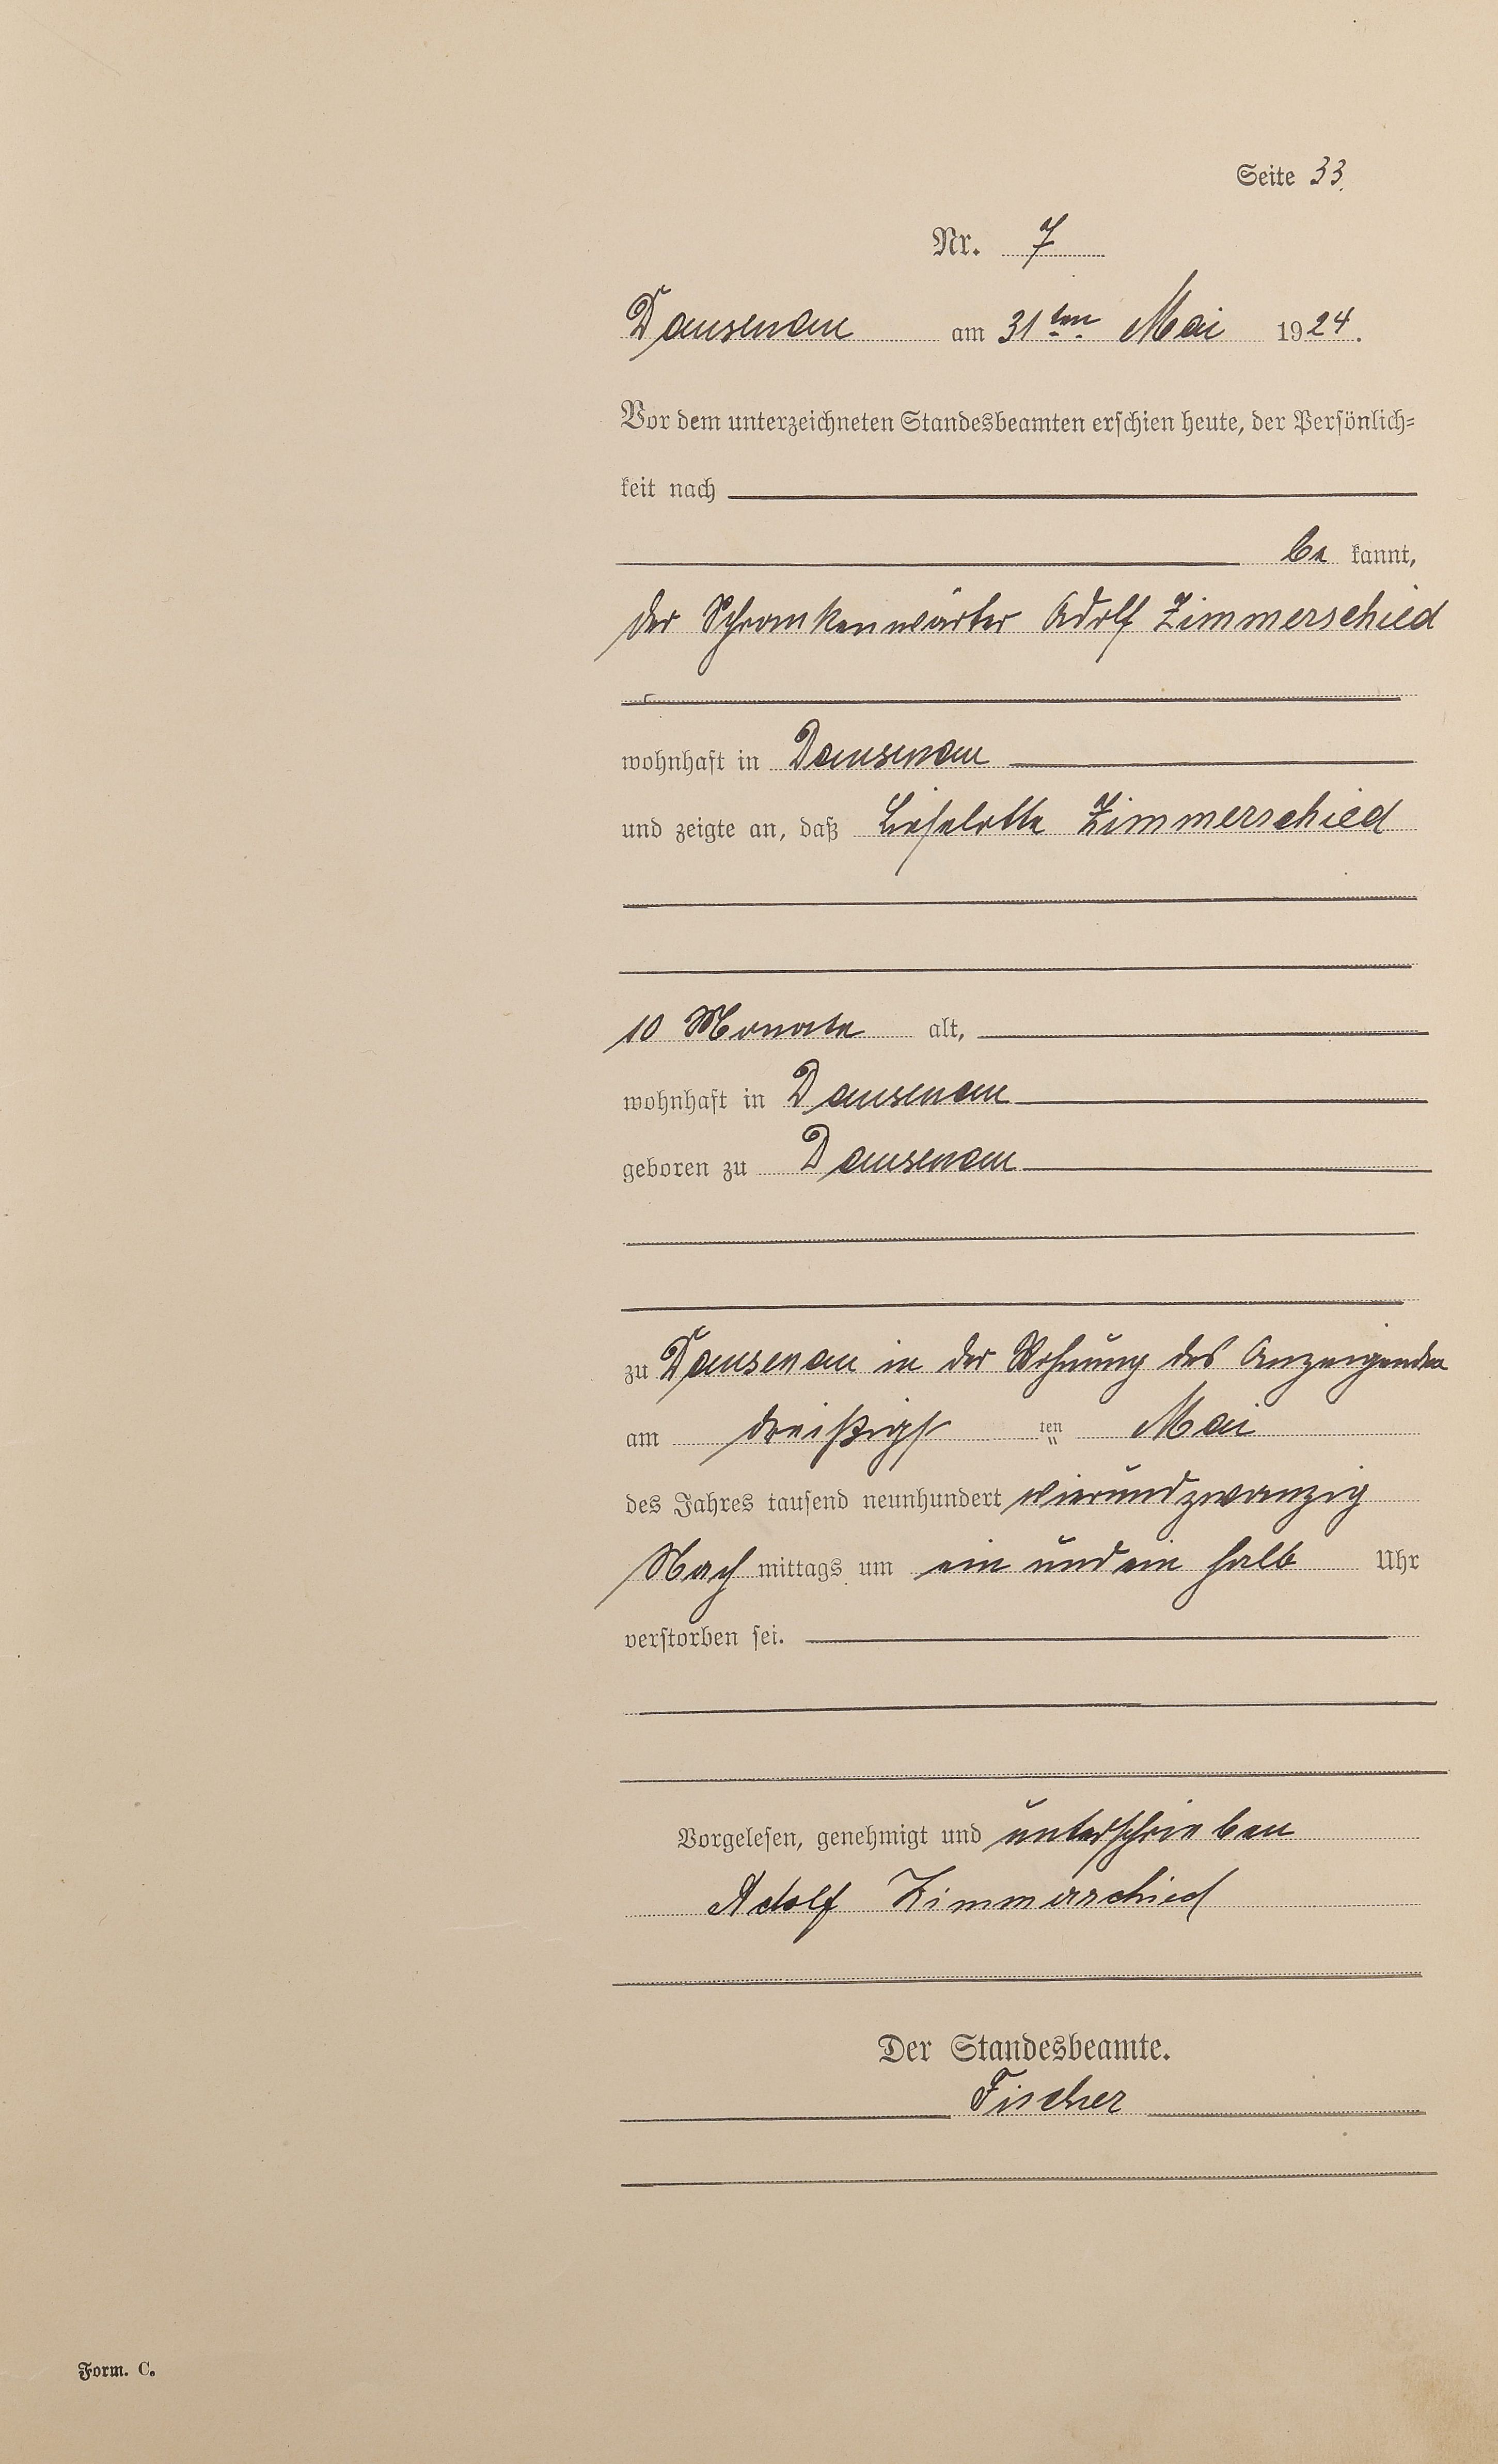 Seite 33.
Nr. 7
Dausenau am 31ten Mai 1924.
Vor dem unterzeichneten Standesbeamten erschien heute, der Persönlich=
keit nach
be kannt,
der Schrankenwärter Adolf Zimmerschied
wohnhaft in Dausenau
und zeigte an, daß Lieselotte Zimmerschied
10 Monate alt,
wohnhaft in Dausenau
geboren zu Dausenau
zu Dausenau in der Wohnung des Anzeigenden
am dreißigst ten Mai
des Jahres tausend neunhundert vierundzwanzig
Nach mittags um ein und ein halb Uhr
verstorben sei.
Vorgelesen, genehmigt und unterschrieben
Adolf Zimmerschied
Der Standesbeamte.
Fischer
Form. C.